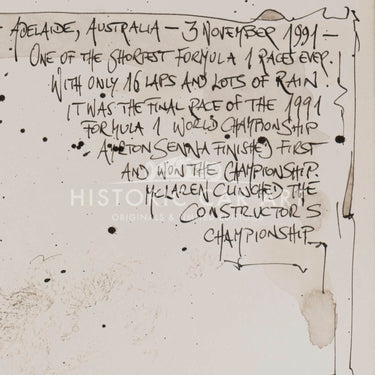 ADELAIDE, AUSTRALIA – 3 NOVEMBER 1991 –
ONE OF THE SHORTEST FORMULA 1 RACES EVER.
WITH ONLY 16 LAPS AND LOTS OF RAIN.
IT WAS THE FINAL RACE OF THE 1991
FORMULA 1 WORLD CHAMPIONSHIP
AYRTON SENNA FINISHED FIRST
AND WON THE CHAMPIONSHIP.
HISTORIC CAR ART
MCLAREN CLINCHED THE
ORIGINALS &
CONSTRUCTOR'S
CHAMPIONSHIP